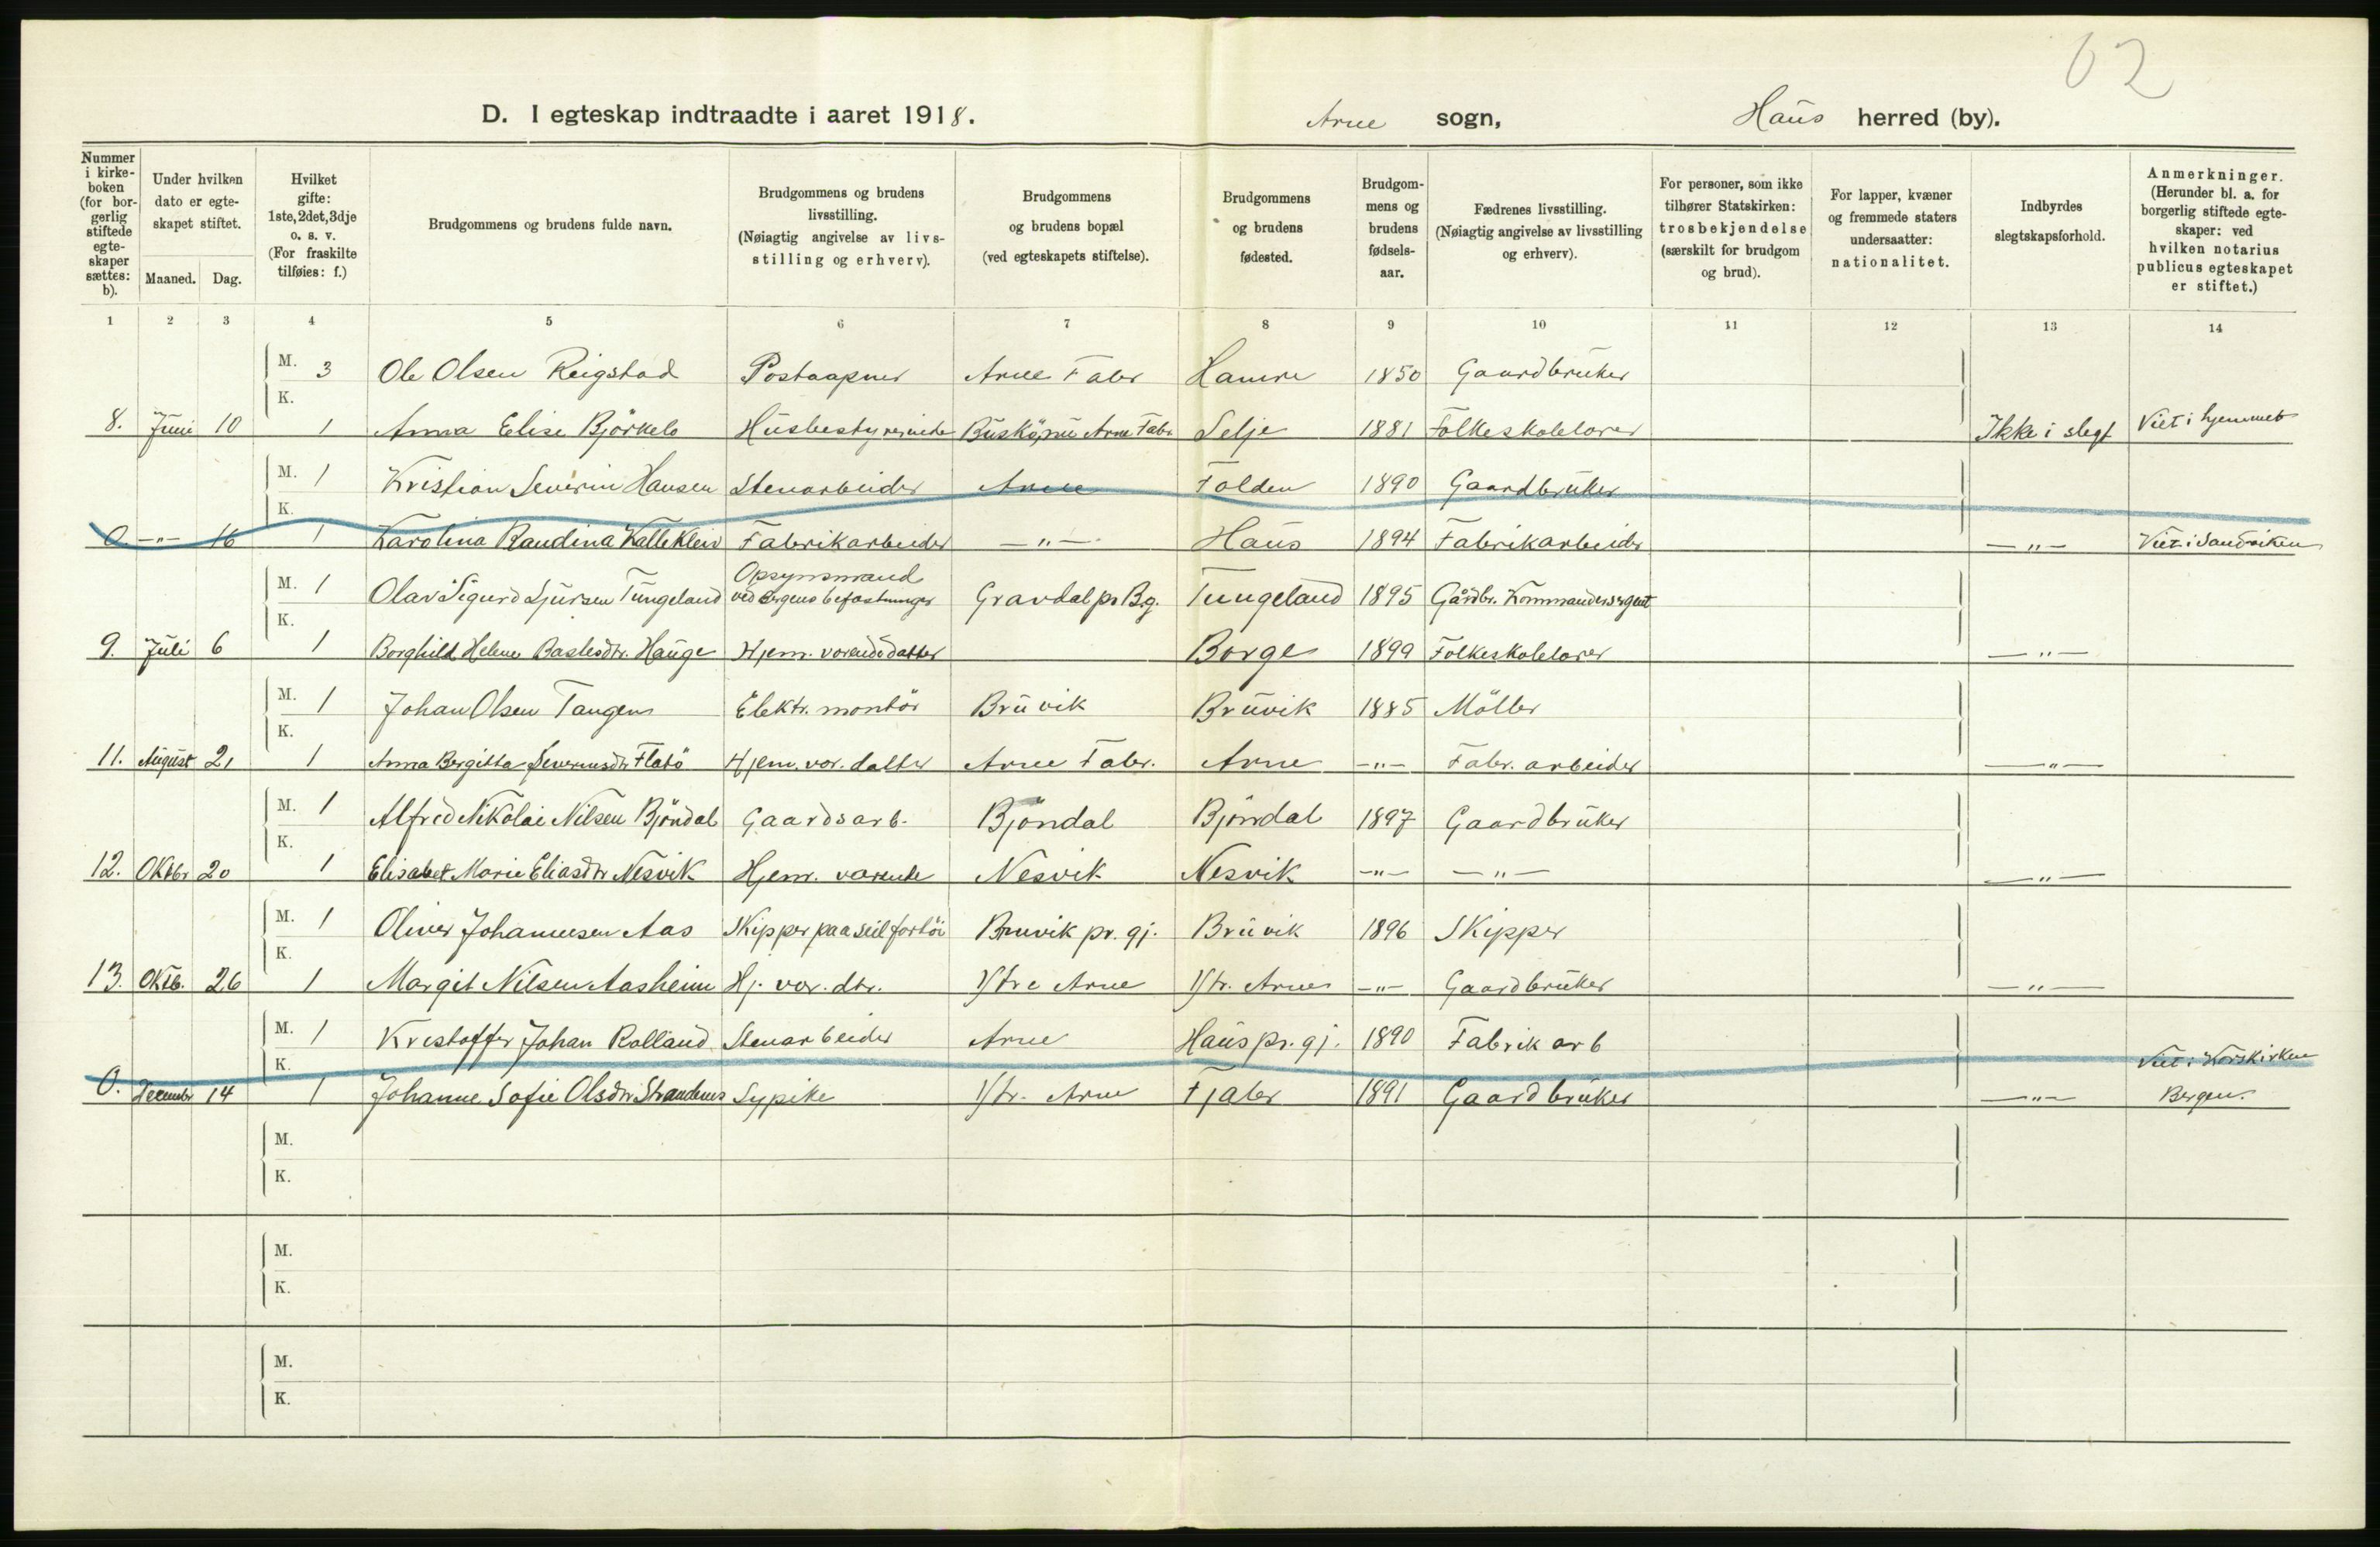 62
D. I egteskap indtraadte i aaret 1918. Arne sogn, Haus herred (by).
Nummer i kirke-boken (for bor-gerlig stiftede egte-skaper sættes: b).
Under hvilken dato er egte-skapet stiftet.
Maaned. Dag.
Hvilket gifte: 1ste, 2det, 3dje o. s. v. (For fraskilte tilføies: f.)
Brudgommens og brudens fulde navn.
Brudgommens og brudens livsstilling. (Nøiagtig angivelse av livs-stilling og erhverv).
Brudgommens og brudens bopæl (ved egteskapets stiftelse).
Brudgommens og brudens fødested.
Brudgom-mens og brudens fødsels-aar.
Fædrenes livsstilling. (Nøiagtig angivelse av livsstilling og erhverv).
For personer, som ikke tilhører Statskirken: trosbekjendelse (særskilt for brudgom og brud).
For lapper, kvæner og fremmede staters undersaatter: nationalitet.
Indbyrdes slegtskapsforhold.
Anmerkninger. (Herunder bl. a. for borgerlig stiftede egte-skaper: ved hvilken notarius publicus egteskapet er stiftet.)
1 2 3 4 5 6 7 8 9 10 11 12 13 14
M. 3 Ole Olsen Reigstad Postaapner Arne Fabr Hamre 1850 Gaardbruker
K.
8. Juni 10 1 Anna Elise Björkelo Husbestyrerinde Arne Fabr. Selje 1881 Folkeskolelærer Ikke i slegt Viet i hjemmet
M. 1 Kristian Severin Hansen Stenarbeider Arne Folden 1890 Gaardbruker
K.
0. -"- 16 1 Karolina Raudina Kalleklein Fabrikarbeider -"- Haus 1894 Fabrikarbeider -"- Viet i Sandviken
M. 1 Olav Sigurd Sjursen Tungeland Opsynsmand ved Bergens befæstninger Gravdal pr Brg. Tungeland 1895 Gårdbr. Kommandersergent
K.
9. Juli 6 1 Borghild Helene Hauge Hjem. værende datter Borge 1899 Folkeskolelærer -"-
M. 1 Johan Olsen Tangen Elektr. montör Bruvik Bruvik 1885 Möller
K.
11. August 21 1 Anna Bergitta Severinsdtr Flatö Hjem. vær. datter Arne Fabr. Arne -"- Fabr. arbeider -"-
M. 1 Alfred Nikolai Nilsen Bjöndal Gaardsarb. Bjöndal Bjöndal 1897 Gaardbruker
K.
12. Oktbr 20 1 Elisabet Marie Eliasdtr Nesvik Hjem. værende Nesvik Nesvik -"- -"- -"-
M. 1 Oliver Johannesen Aas Skipper paa seilfartöi Bruvik pr. gj. Bruvik 1896 Skipper
K.
13. Oktb. 26 1 Margit Nilsen Aasheim Hj. vær. dtr. Ytre Arne Ytr. Arne -"- Gaardbruker -"-
M. 1 Kristoffer Johan Rolland Stenarbeider Arne Haus pr. gj. 1890 Fabrik arb
K.
0. Decembr 14 1 Johanne Sofie Olsdtr Strandenes Sypike Ytr. Arne Fjaler 1891 Gaardbruker -"- Viet i Korskirken Bergen.
M.
K.
M.
K.
M.
K.